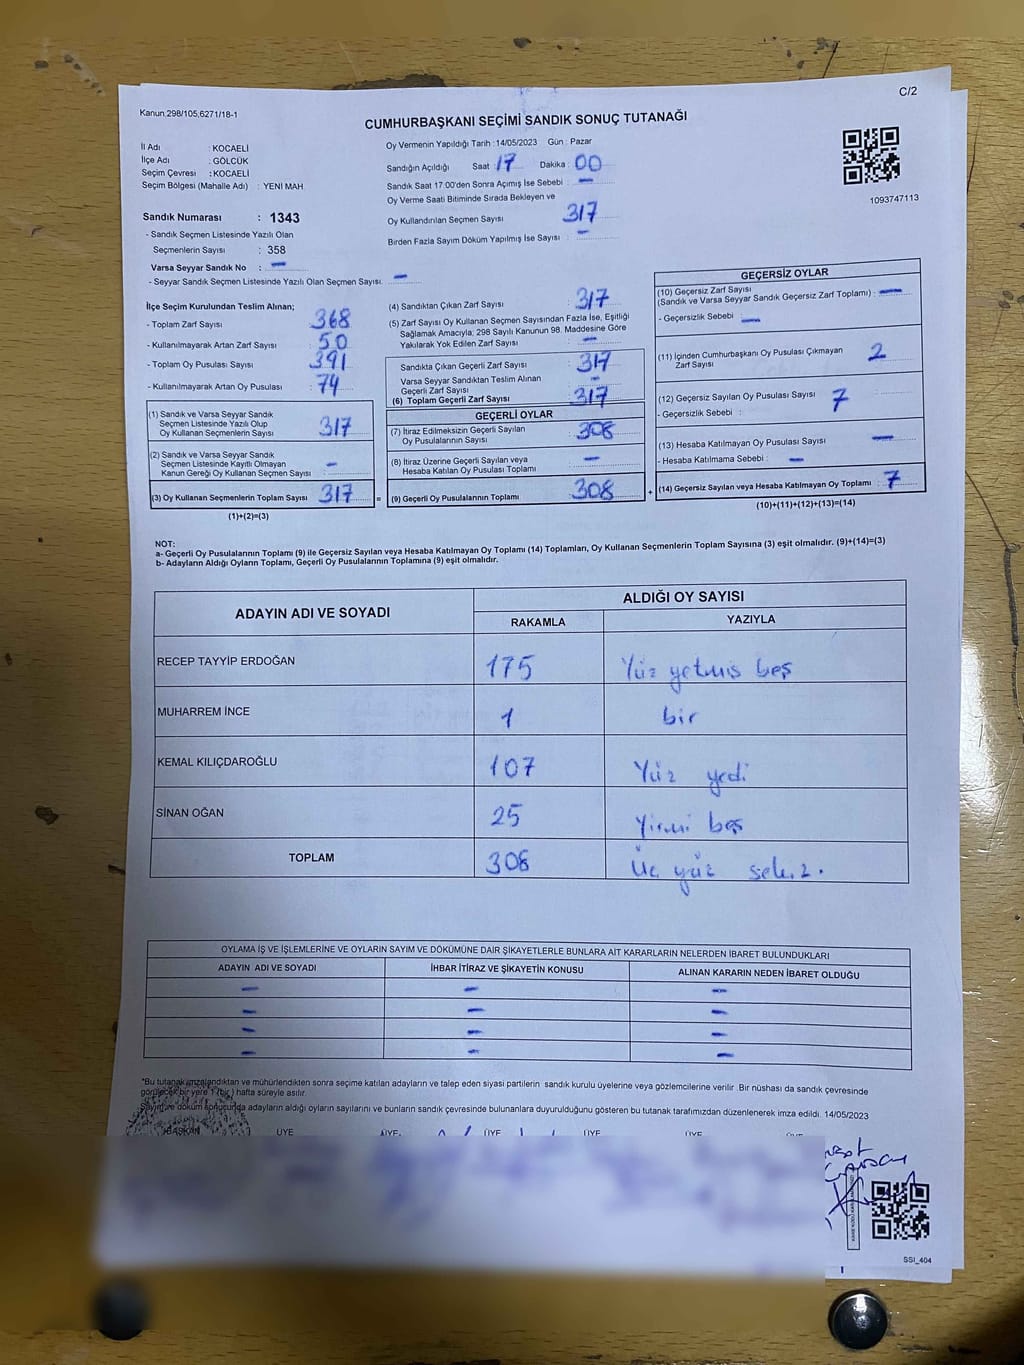 C/2
Kanun.298/105,6271/18-1
CUMHURBAŞKANI SEÇİMİ SANDIK SONUÇ TUTANAĞI
İl Adı : KOCAELİ
İlçe Adı : GÖLCÜK
Seçim Çevresi : KOCAELİ
Seçim Bölgesi (Mahalle Adı) : YENİ MAH.
Sandık Numarası : 1343
- Sandık Seçmen Listesinde Yazılı Olan
Seçmenlerin Sayısı : 358
Varsa Seyyar Sandık No : -
- Seyyar Sandık Seçmen Listesinde Yazılı Olan Seçmen Sayısı. -
Oy Vermenin Yapıldığı Tarih :14/05/2023 Gün : Pazar
Sandığın Açıldığı Saat : 17 Dakika : 00
Sandık Saat 17:00'den Sonra Açımış İse Sebebi : -
Oy Verme Saati Bitiminde Sırada Bekleyen ve
Oy Kullandırılan Seçmen Sayısı 317
Birden Fazla Sayım Döküm Yapılmış İse Sayısı : -
1093747113
İlçe Seçim Kurulundan Teslim Alınan;
- Toplam Zarf Sayısı : 368
- Kullanılmayarak Artan Zarf Sayısı : 50
- Toplam Oy Pusulası Sayısı : 391
- Kullanılmayarak Artan Oy Pusulası : 74
(1) Sandık ve Varsa Seyyar Sandık
Seçmen Listesinde Yazılı Olup
Oy Kullanan Seçmenlerin Sayısı 317
(2) Sandık ve Varsa Seyyar Sandık
Seçmen Listesinde Kayıtlı Olmayan
Kanun Gereği Oy Kullanan Seçmen Sayısı : -
(3) Oy Kullanan Seçmenlerin Toplam Sayısı : 317 =
(1)+(2)=(3)
(4) Sandıktan Çıkan Zarf Sayısı : 317
(5) Zarf Sayısı Oy Kullanan Seçmen Sayısından Fazla İse, Eşitliği
Sağlamak Amacıyla; 298 Sayılı Kanunun 98. Maddesine Göre
Yakılarak Yok Edilen Zarf Sayısı : -
Sandıkta Çıkan Geçerli Zarf Sayısı : 317
Varsa Seyyar Sandıktan Teslim Alınan
Geçerli Zarf Sayısı : -
(6) Toplam Geçerli Zarf Sayısı : 317
GEÇERLİ OYLAR
(7) İtiraz Edilmeksizin Geçerli Sayılan
Oy Pusulalarının Sayısı : 308
(8) İtiraz Üzerine Geçerli Sayılan veya
Hesaba Katılan Oy Pusulası Toplamı : -
(9) Geçerli Oy Pusulalarının Toplamı 308 +
GEÇERSİZ OYLAR
(10) Geçersiz Zarf Sayısı
(Sandık ve Varsa Seyyar Sandık Geçersiz Zarf Toplamı) : -
- Geçersizlik Sebebi : -
(11) İçinden Cumhurbaşkanı Oy Pusulası Çıkmayan
Zarf Sayısı 2
(12) Geçersiz Sayılan Oy Pusulası Sayısı : 7
- Geçersizlik Sebebi :
(13) Hesaba Katılmayan Oy Pusulası Sayısı : -
- Hesaba Katılmama Sebebi : -
(14) Geçersiz Sayılan veya Hesaba Katılmayan Oy Toplamı : 7
(10)+(11)+(12)+(13)=(14)
NOT:
a- Geçerli Oy Pusulalarının Toplamı (9) ile Geçersiz Sayılan veya Hesaba Katılmayan Oy Toplamı (14) Toplamları, Oy Kullanan Seçmenlerin Toplam Sayısına (3) eşit olmalıdır. (9)+(14)=(3)
b- Adayların Aldığı Oyların Toplamı, Geçerli Oy Pusulalarının Toplamına (9) eşit olmalıdır.
ADAYIN ADI VE SOYADI ALDIĞI OY SAYISI
RAKAMLA YAZIYLA
RECEP TAYYİP ERDOĞAN 175 Yüz yetmiş beş
MUHARREM İNCE 1 bir
KEMAL KILIÇDAROĞLU 107 Yüz yedi
SİNAN OĞAN 25 Yirmi beş
TOPLAM 308 Üç yüz sekiz.
OYLAMA İŞ VE İŞLEMLERİNE VE OYLARIN SAYIM VE DÖKÜMÜNE DAİR ŞİKAYETLERLE BUNLARA AİT KARARLARIN NELERDEN İBARET BULUNDUKLARI
ADAYIN ADI VE SOYADI İHBAR İTİRAZ VE ŞİKAYETİN KONUSU ALINAN KARARIN NEDEN İBARET OLDUĞU
- - -
- - -
- - -
- - -
*Bu tutanak imzalandıktan ve mühürlendikten sonra seçime katılan adayların ve talep eden siyasi partilerin sandık kurulu üyelerine veya gözlemcilerine verilir. Bir nüshası da sandık çevresinde
görülecek bir yere 1 (bir) hafta süreyle asılır.
Sayım ve döküm sonucunda adayların aldığı oyların sayılarını ve bunların sandık çevresinde bulunanlara duyurulduğunu gösteren bu tutanak tarafımızdan düzenlenerek imza edildi. 14/05/2023
BAŞKAN ÜYE ÜYE ÜYE ÜYE ÜYE ÜYE
SSI_404